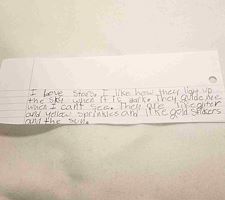 I love stars. I like how they light up
the sky when it is dark. They guide me
when I cant see. They are like glitter
and yellow sprinkles and like gold
and the sun.